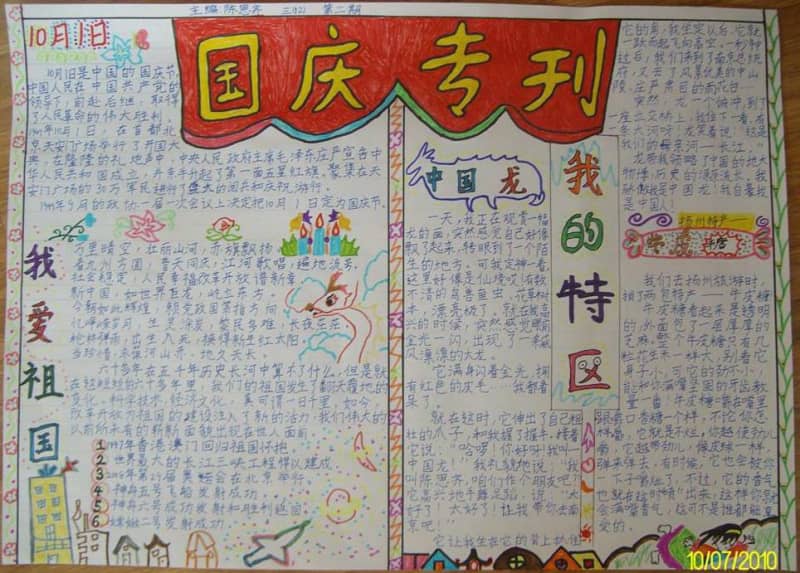 主编:陈思齐 三(2) 第二期
10月1日
国庆专刊
10月1日是中国的国庆节,
中国人民在中国共产党的
领导下,前赴后继,取得
了人民革命的伟大胜利。
1949年10月1日,在首都北
京天安门广场举行了开国大
典,在隆隆的礼炮声中,中央人民政府主席毛泽东庄严宣告中
华人民共和国成立,并亲手升起了第一面五星红旗。聚集在天
安门广场的30万军民进行了盛大的阅兵和庆祝游行。
1949年9月的政协一届一次会议上决定把10月1日定为国庆节。
我爱祖国
万里晴空,壮丽山河,赤旗飘扬
看九州方圆,普天同庆;江河歌唱,遍地流芳。
社会稳定,人民幸福改革开放谱新章
新中国,如世界巨龙,屹立东方。
六十多年在五千年历史长河中算不了什么,但是就
在这短短的六十多年里,我们的祖国发生了翻天覆地的
变化。科学技术、经济文化,真可谓一日千里。如今,
改革开放为祖国的建设注入了新的活力,我们伟大的
以前所未有的崭新面貌出现在世人面前。
1 1997年香港澳门回归祖国怀抱
2 世界最大的长江三峡工程得以建成
3 2008年第29届奥运会在北京举行
4 神舟五号飞船发射成功。
5 神舟六号成功发射和胜利返回。
6 嫦娥二号发射成功。
中国龙
一天,我正在观赏一幅
龙的画,突然感觉自己好像
飘了起来,转眼到了一个陌
生的地方。可我定神一看,
这里好像是仙境
兴的时候,突然感觉眼前
金光一闪,出现了一条威
风凛凛的大龙。
它满身闪着金光,拥
有红色的皮毛……我都看
呆了。
就在这时,它伸出了自己粗
壮的爪子,和我握了握手,接着
它说:“哈喽!你好吗?我叫
中国龙!”我礼貌地说:“我
叫陈思齐,咱们作个朋友吧!”
它高兴地手舞足蹈,说:“太
好了!太好了!让我带你去南
京吧!”
它让我坐在它的背上,抓住
我的特区
它的角,我坐定以后,它就
一跃而起飞向高空。一秒钟
过后,我们来到了南京总统
府,又去了风景优美的中山
陵、庄严肃穆的雨花台。
突然,龙一个俯冲,到了
座立交桥上,我往下一看,有
条大河呀!龙笑着说:“这是
我们的母亲河——长江。”
龙带我领略了中国的地大
物博,历史的源远流长。我
骄傲我是中国龙!我自豪我
是中国人!
扬州特产——
牛皮糖
我们去扬州旅游时,
捎了两包特产——牛皮糖
牛皮糖看起来是透明
的,外面包了一层厚厚的
芝麻。整个牛皮糖只有几
粒花生米一样大,别看它
身子小,它的劲
能和你满嘴坚固的牙齿较
量一番!牛皮糖靠在嘴里
跟嚼口香糖一个样,不论你怎
样嚼,它就是不烂,你越使劲儿
嚼,它越带劲儿,像皮球一样
弹来弹去,有时候,它也会被你
10/07/2010